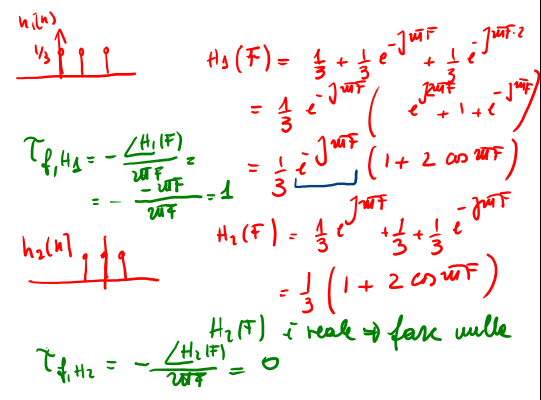 h₁(n)
1/3
H₁(F) = 1/3 + 1/3 e^{-j2πF} + 1/3 e^{-j2πF·2}
= 1/3 e^{-j2πF} ( e^{j2πF} + 1 + e^{-j2πF} )
= 1/3 e^{-j2πF} ( 1 + 2 cos 2πF )
τ_{f,H1} = - ∠H₁(F) / 2πF =
= - -2πF / 2πF = 1
h₂(n)
H₂(F) = 1/3 e^{j2πF} + 1/3 + 1/3 e^{-j2πF}
= 1/3 ( 1 + 2 cos 2πF )
H₂(F) è reale ⇒ fase nulla
τ_{f,H2} = - ∠H₂(F) / 2πF = 0